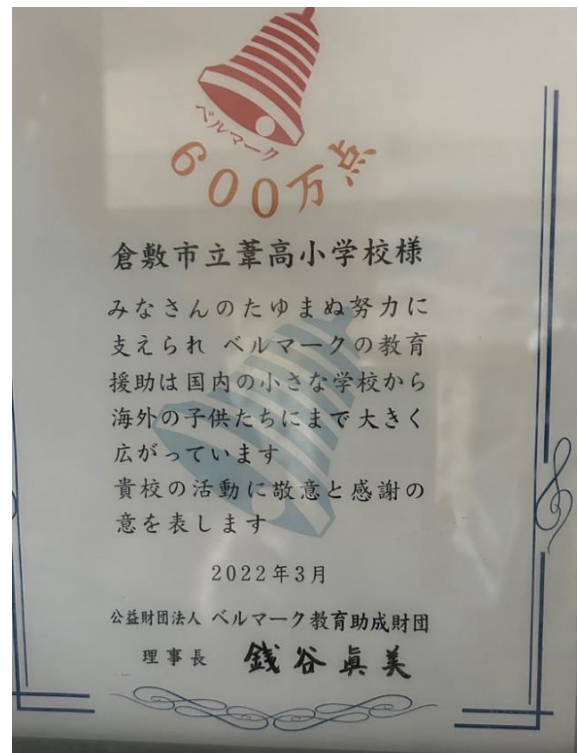 ベルマーク
600万点
倉敷市立葦高小学校様
みなさんのたゆまぬ努力に
支えられ ベルマークの教育
援助は国内の小さな学校から
海外の子供たちにまで大きく
広がっています
貴校の活動に敬意と感謝の
意を表します
2022年3月
公益財団法人 ベルマーク教育助成財団
理事長 銭谷眞美